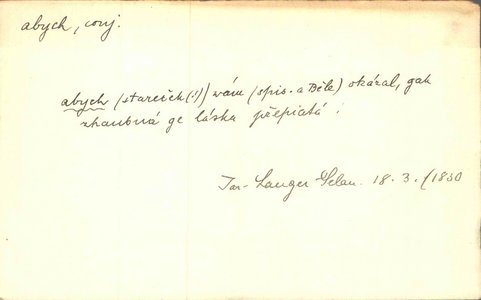 abych, conj.
abych (stareček (!)) wám (spis. a Běle) okázal, gak
zhaubná ge láska přepiatá!
Jar. Langer Selan. 18. 3. (1830